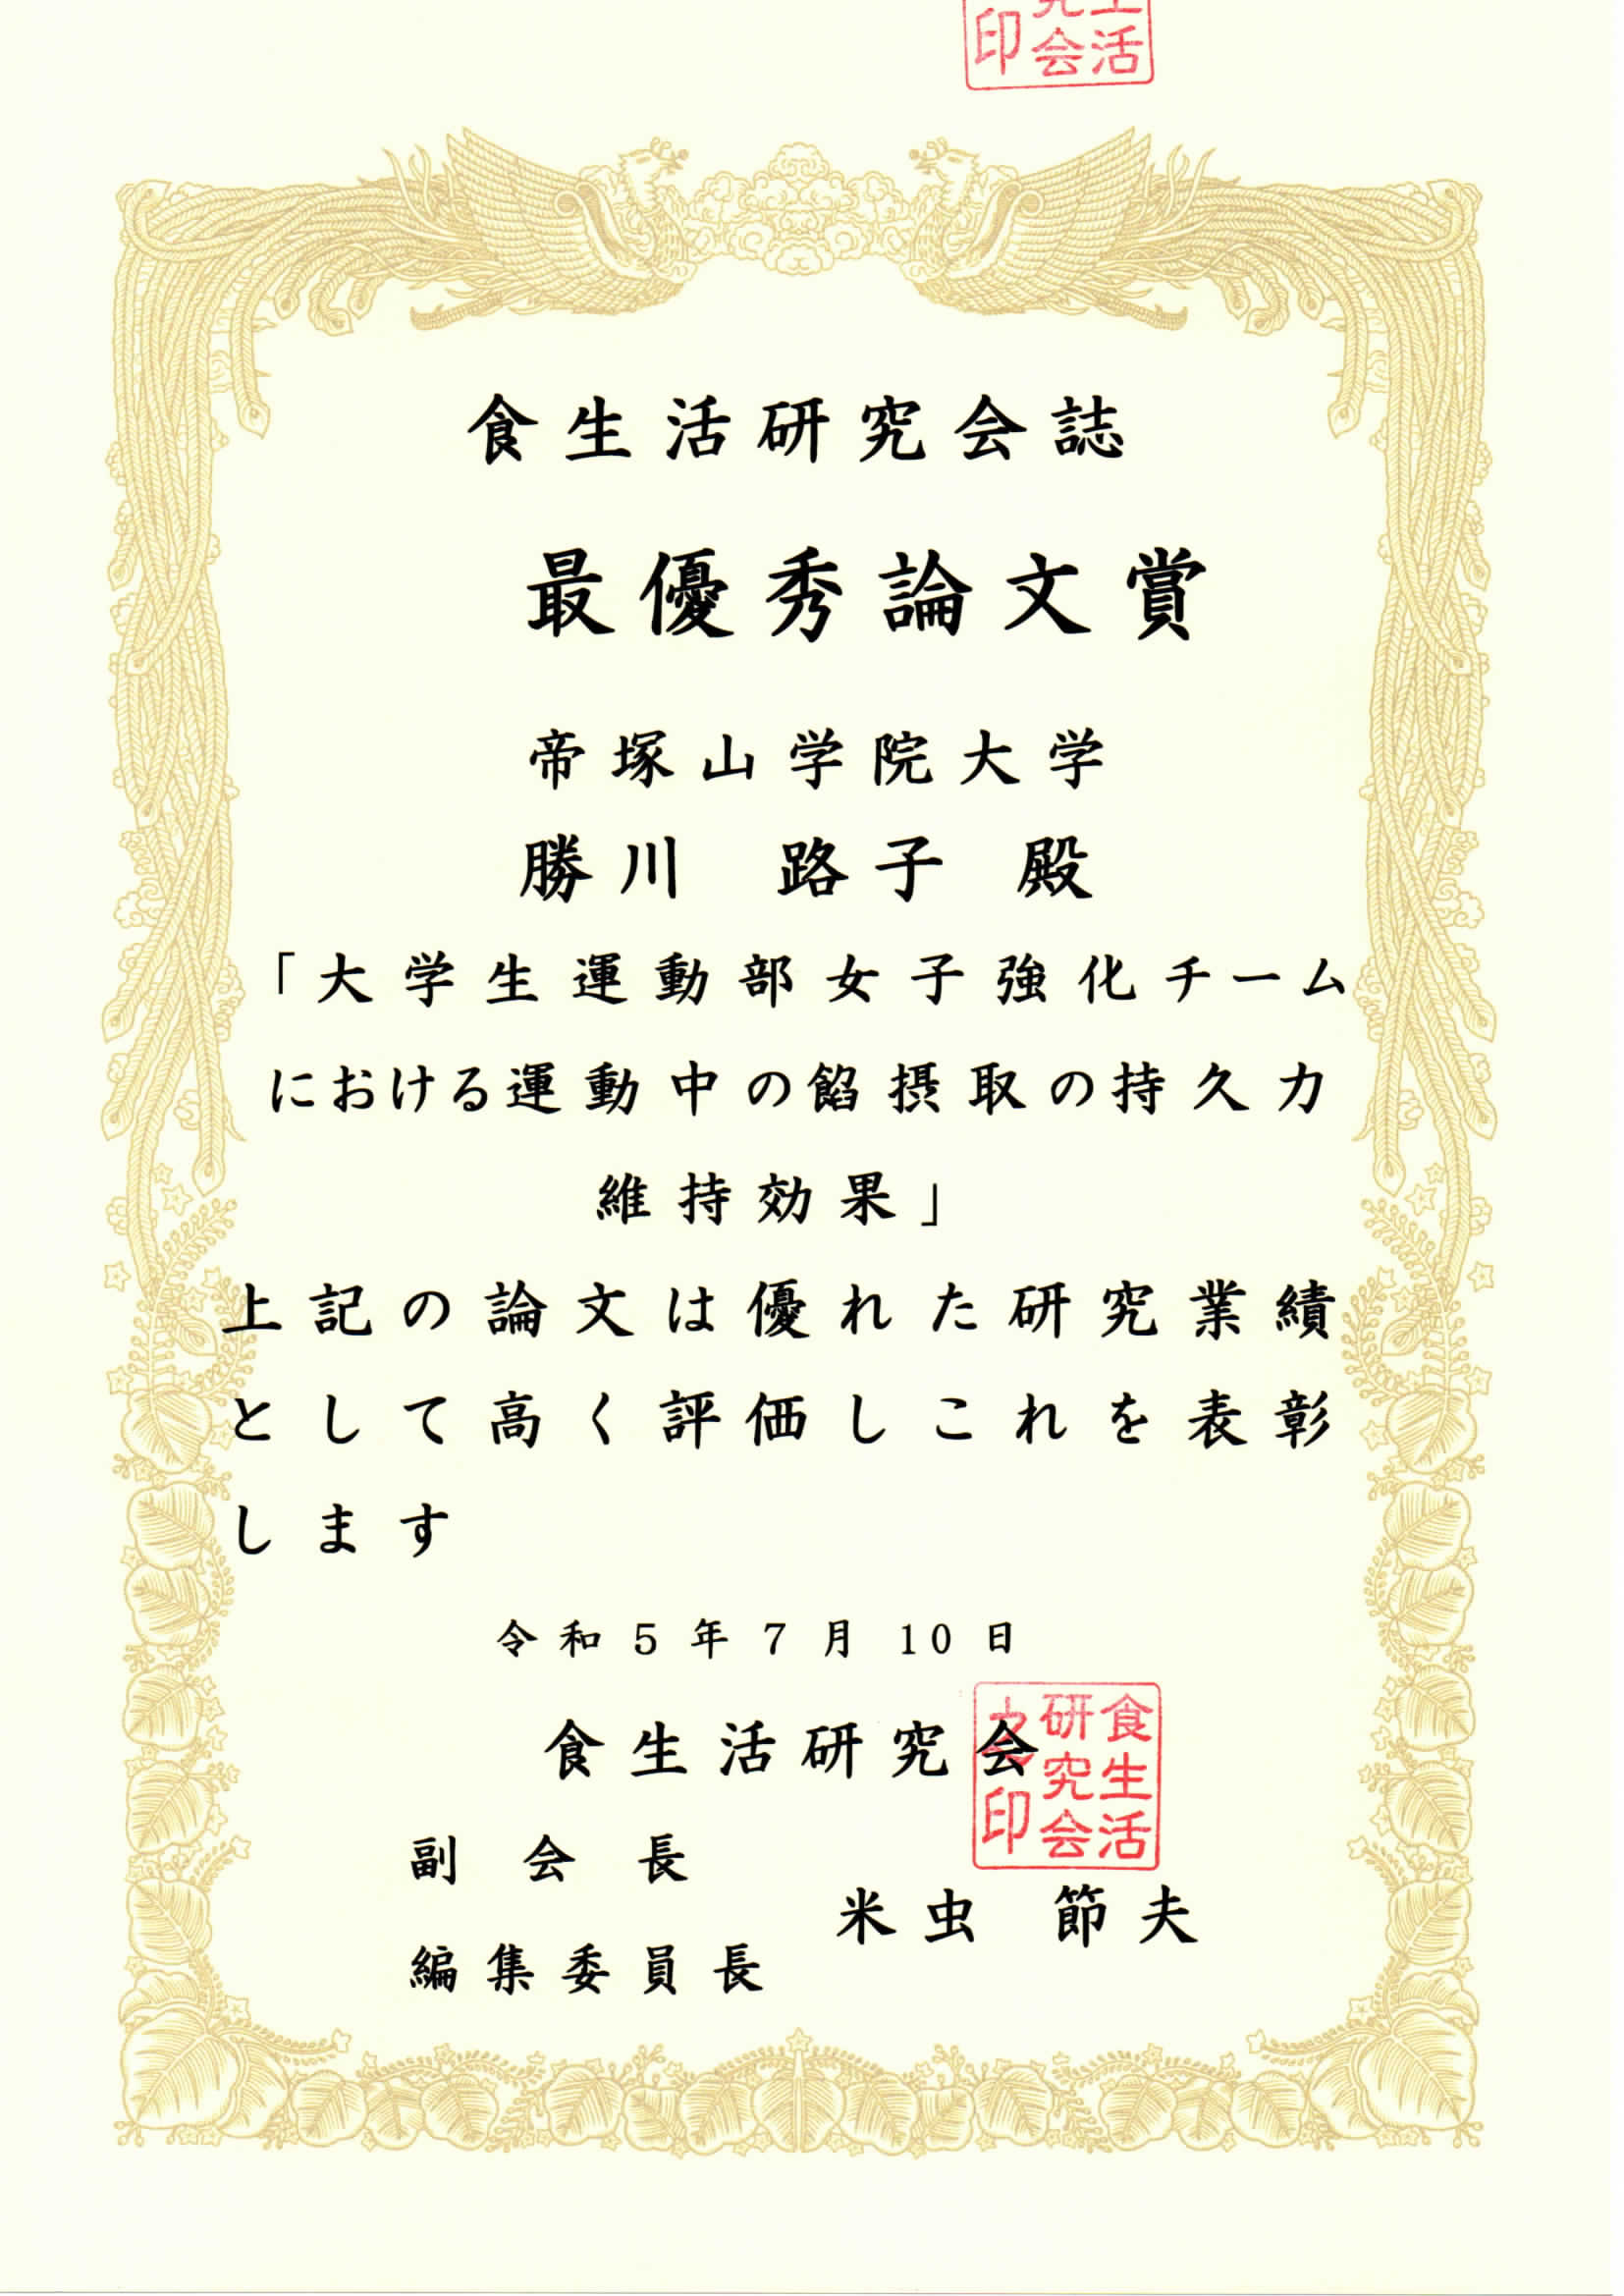 印 会 活
食生活研究会誌
最優秀論文賞
帝塚山学院大学
勝川 路子 殿
「大学生運動部女子強化チーム
における運動中の餡摂取の持久力
維持効果」
上記の論文は優れた研究業績
として高く評価しこれを表彰
します
令和5年7月10日
食生活研究会
食生活
研究会
之印
副会長
編集委員長
米虫 節夫